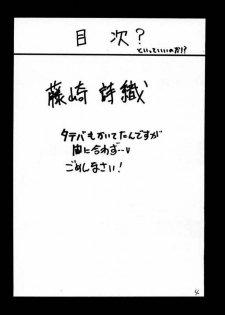 目次?
といっていいのか!?
藤崎 詩織
タテバもかいてたんですが
間に合わず…
ごめしまさい!